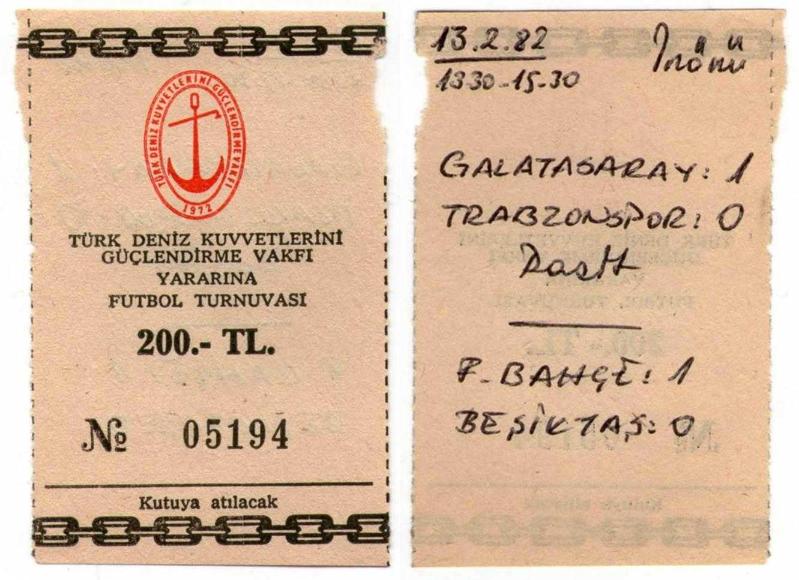 TÜRK DENİZ KUVVETLERİNİ GÜÇLENDİRME VAKFI
1972
TÜRK DENİZ KUVVETLERİNİ
GÜÇLENDİRME VAKFI
YARARINA
FUTBOL TURNUVASI
200.- TL.
№ 05194
Kutuya atılacak
13.2.82
1330-15.30
İnönü
GALATASARAY: 1
TRABZONSPOR: 0
F. BAHÇE: 1
BEŞİKTAŞ: 0